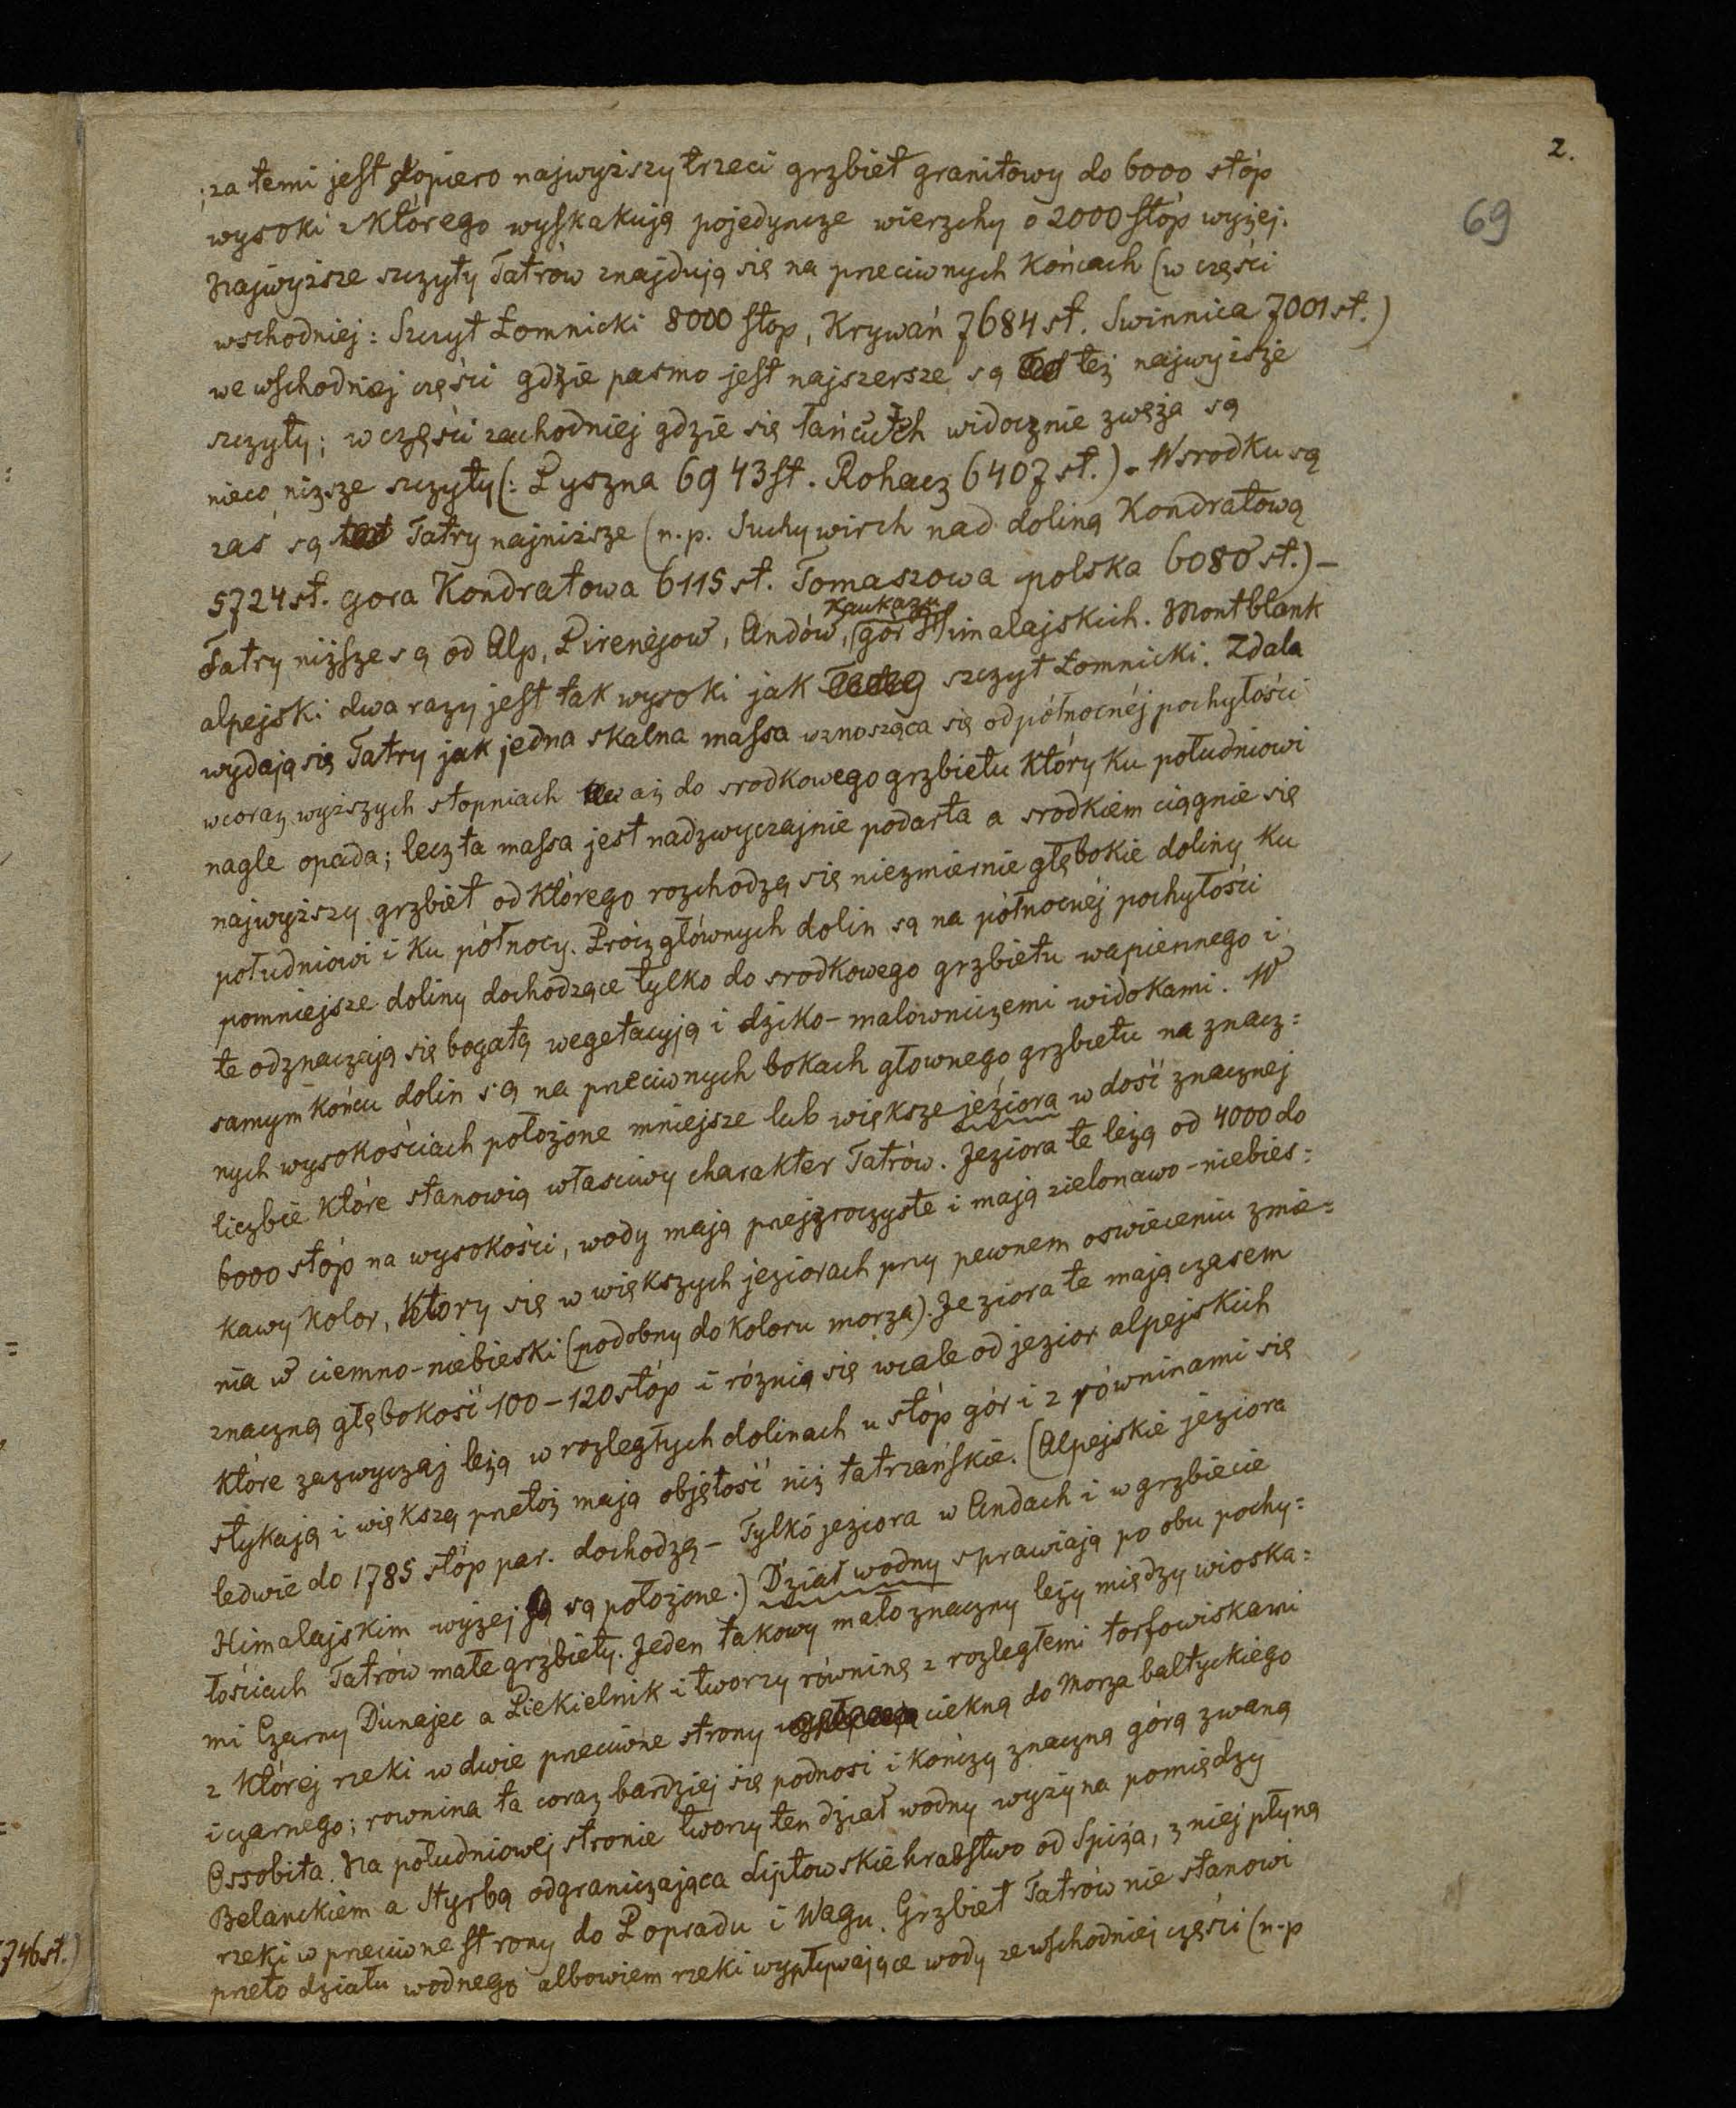 2.
69
; za temi jest dopiero najwyższy trzeci grzbiet granitowy do 6000 stóp
wysoki z którego wyskakują pojedyncze wierzchy o 2000 stóp wyżej.
Najwyższe szczyty Tatrów znajdują się na przeciwnych końcach (w części
wschodniej: Szczyt Łomnicki 8000 stop, Krywań 7684 st. Swinnica 7001 st.)
we wschodniej części gdzie pasmo jest najszersze są też najwyższe
szczyty; w części zachodniej gdzie się łańcuch widocznie zwęża są
nieco niższe szczyty (: Pyszna 6943 st. Rohacz 6407 st.). W srodku są
zaś są Tatry najniższe (n.p. Suchy wirch nad doliną Kondratową
5724 st. gora Kondratowa 6115 st. Tomaszowa polska 6080 st.) –
Tatry niższe są od Alp, Pirenejow, Andów, Kaukazu gór Himalajskich. Montblank
alpejski dwa razy jest tak wysoki jak szczyt Łomnicki. Zdala
wydają się Tatry jak jedna skalna massa wznosząca się od północnéj pochyłości
w coraz wyższych stopniach aż do srodkowego grzbietu który ku południowi
nagle opada; lecz ta massa jest nadzwyczajnie podarta a srodkiem ciągnie się
najwyższy grzbiet od którego rozchodzą się niezmiernie głębokie doliny ku
południowi i ku północy. Prócz głównych dolin są na północnéj pochyłości
pomniejsze doliny dochodzące tylko do srodkowego grzbietu wapiennego i
te odznaczają się bogatą wegetacyją i dziko-malowniczemi widokami. W
samym końcu dolin są na przeciwnych bokach głownego grzbietu na znacz=
nych wysokościach położone mniejsze lub większe jeziora w dość znacznej
liczbie które stanowią właściwy charakter Tatrów. Jeziora te leżą od 4000 do
6000 stóp na wysokości, wody mają przejzroczyste i mają zielonawo-niebies=
kawy kolor, ktory się w większych jeziorach przy pewnem oswieceniu zmie=
nia w ciemno-niebieski (podobny do koloru morza). Jeziora te mają czasem
znaczną głębokość 100–120 stóp i róznią się wcale od jezior alpejskich
które zazwyczaj leżą w rozległych dolinach u stóp gór i z równinami się
stykają i większą przetoż mają objętość niż tatrzańskie. (Alpejskie jeziora
ledwie do 1785 stóp par. dochodzą – Tylko jeziora w Andach i w grzbiecie
Himalajskim wyżej są położone.) Dział wodny sprawiają po obu pochy=
łościach Tatrów małe grzbiety. Jeden takowy mało znaczny leży między wioska=
mi Czarny Dunajec a Piekielnik i tworzy równinę z rozległemi torfowiskami
z której rzeki w dwie przeciwne strony ciekną do Morza bałtyckiego
i czarnego; rownina ta coraz bardziej się podnosi i kończy znaczną górą zwaną
Ossobita. Na południowej stronie tworzy ten dział wodny wyżyna pomiędzy
Belanckiem a Styrbą odgraniczająca Liptowskie hrabstwo od Spiża, z niej płyną
rzeki w przeciwne strony do Popradu i Wagu. Grzbiet Tatrów nie stanowi
przeto działu wodnego albowiem rzeki wypływające wody ze wschodniej części (n.p
746 st.)